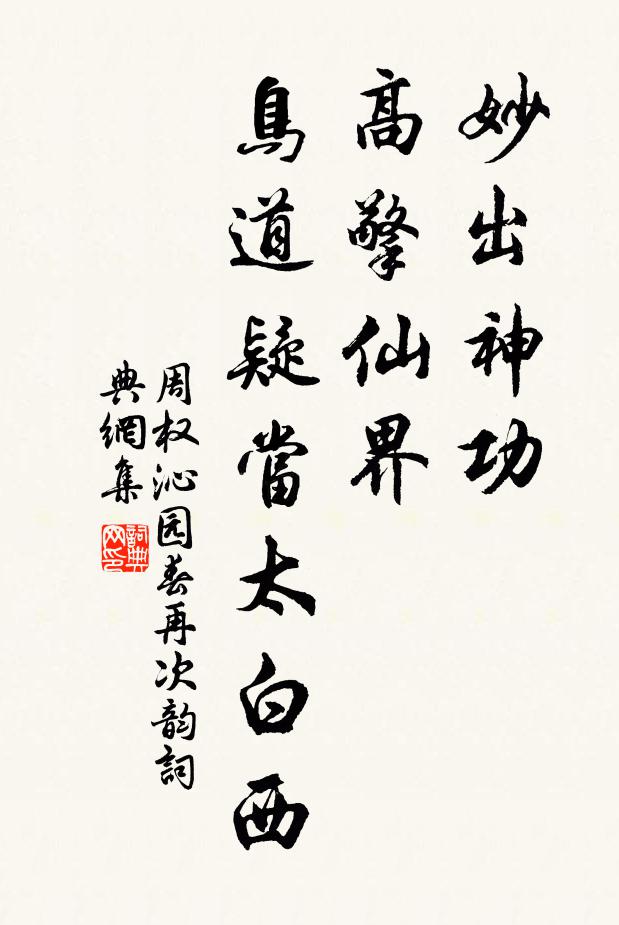 妙出神功
高擎仙界
鳥道疑當太白西
周权沁园春再次韵詞
典網集
詞典
网印